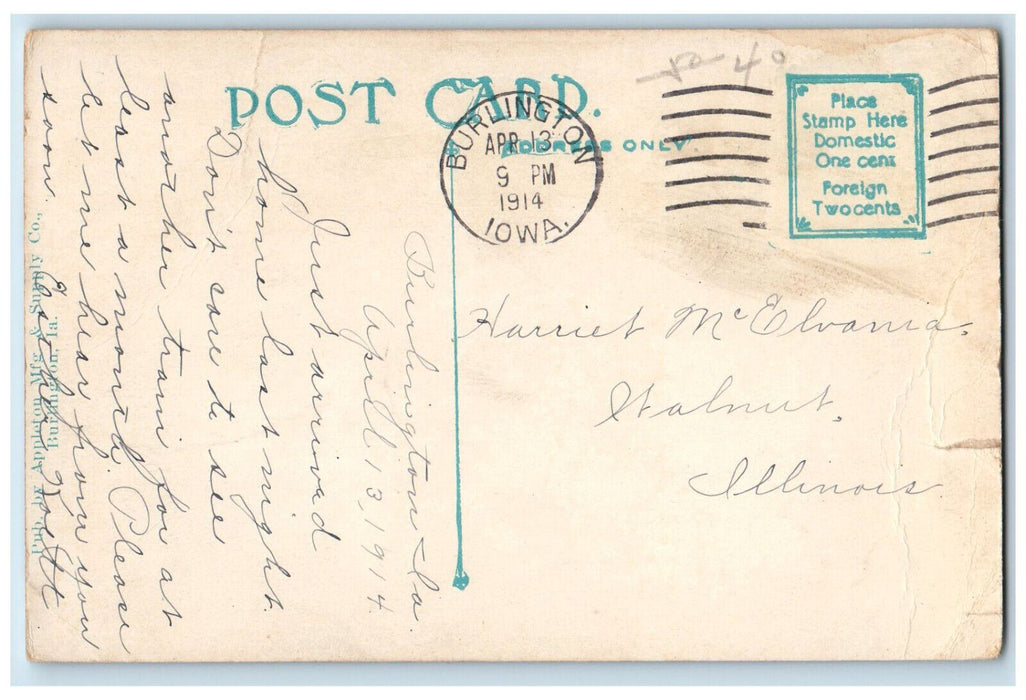 POST CARD.
ADDRESS ONLY
BURLINGTON
APR 13
9 PM
1914
IOWA.
40
Place
Stamp Here
Domestic
One cent
Foreign
Two cents
Burlington Ia.
April 13 1914.
Just arrived
home last night.
Don't care to see
another train for at
least a month. Please
let me hear from you
soon.
Harriet McElvania.
Walnut,
Illinois.
Pub. by Appleton Mfg & Supply Co.,
Burlington, Ia.